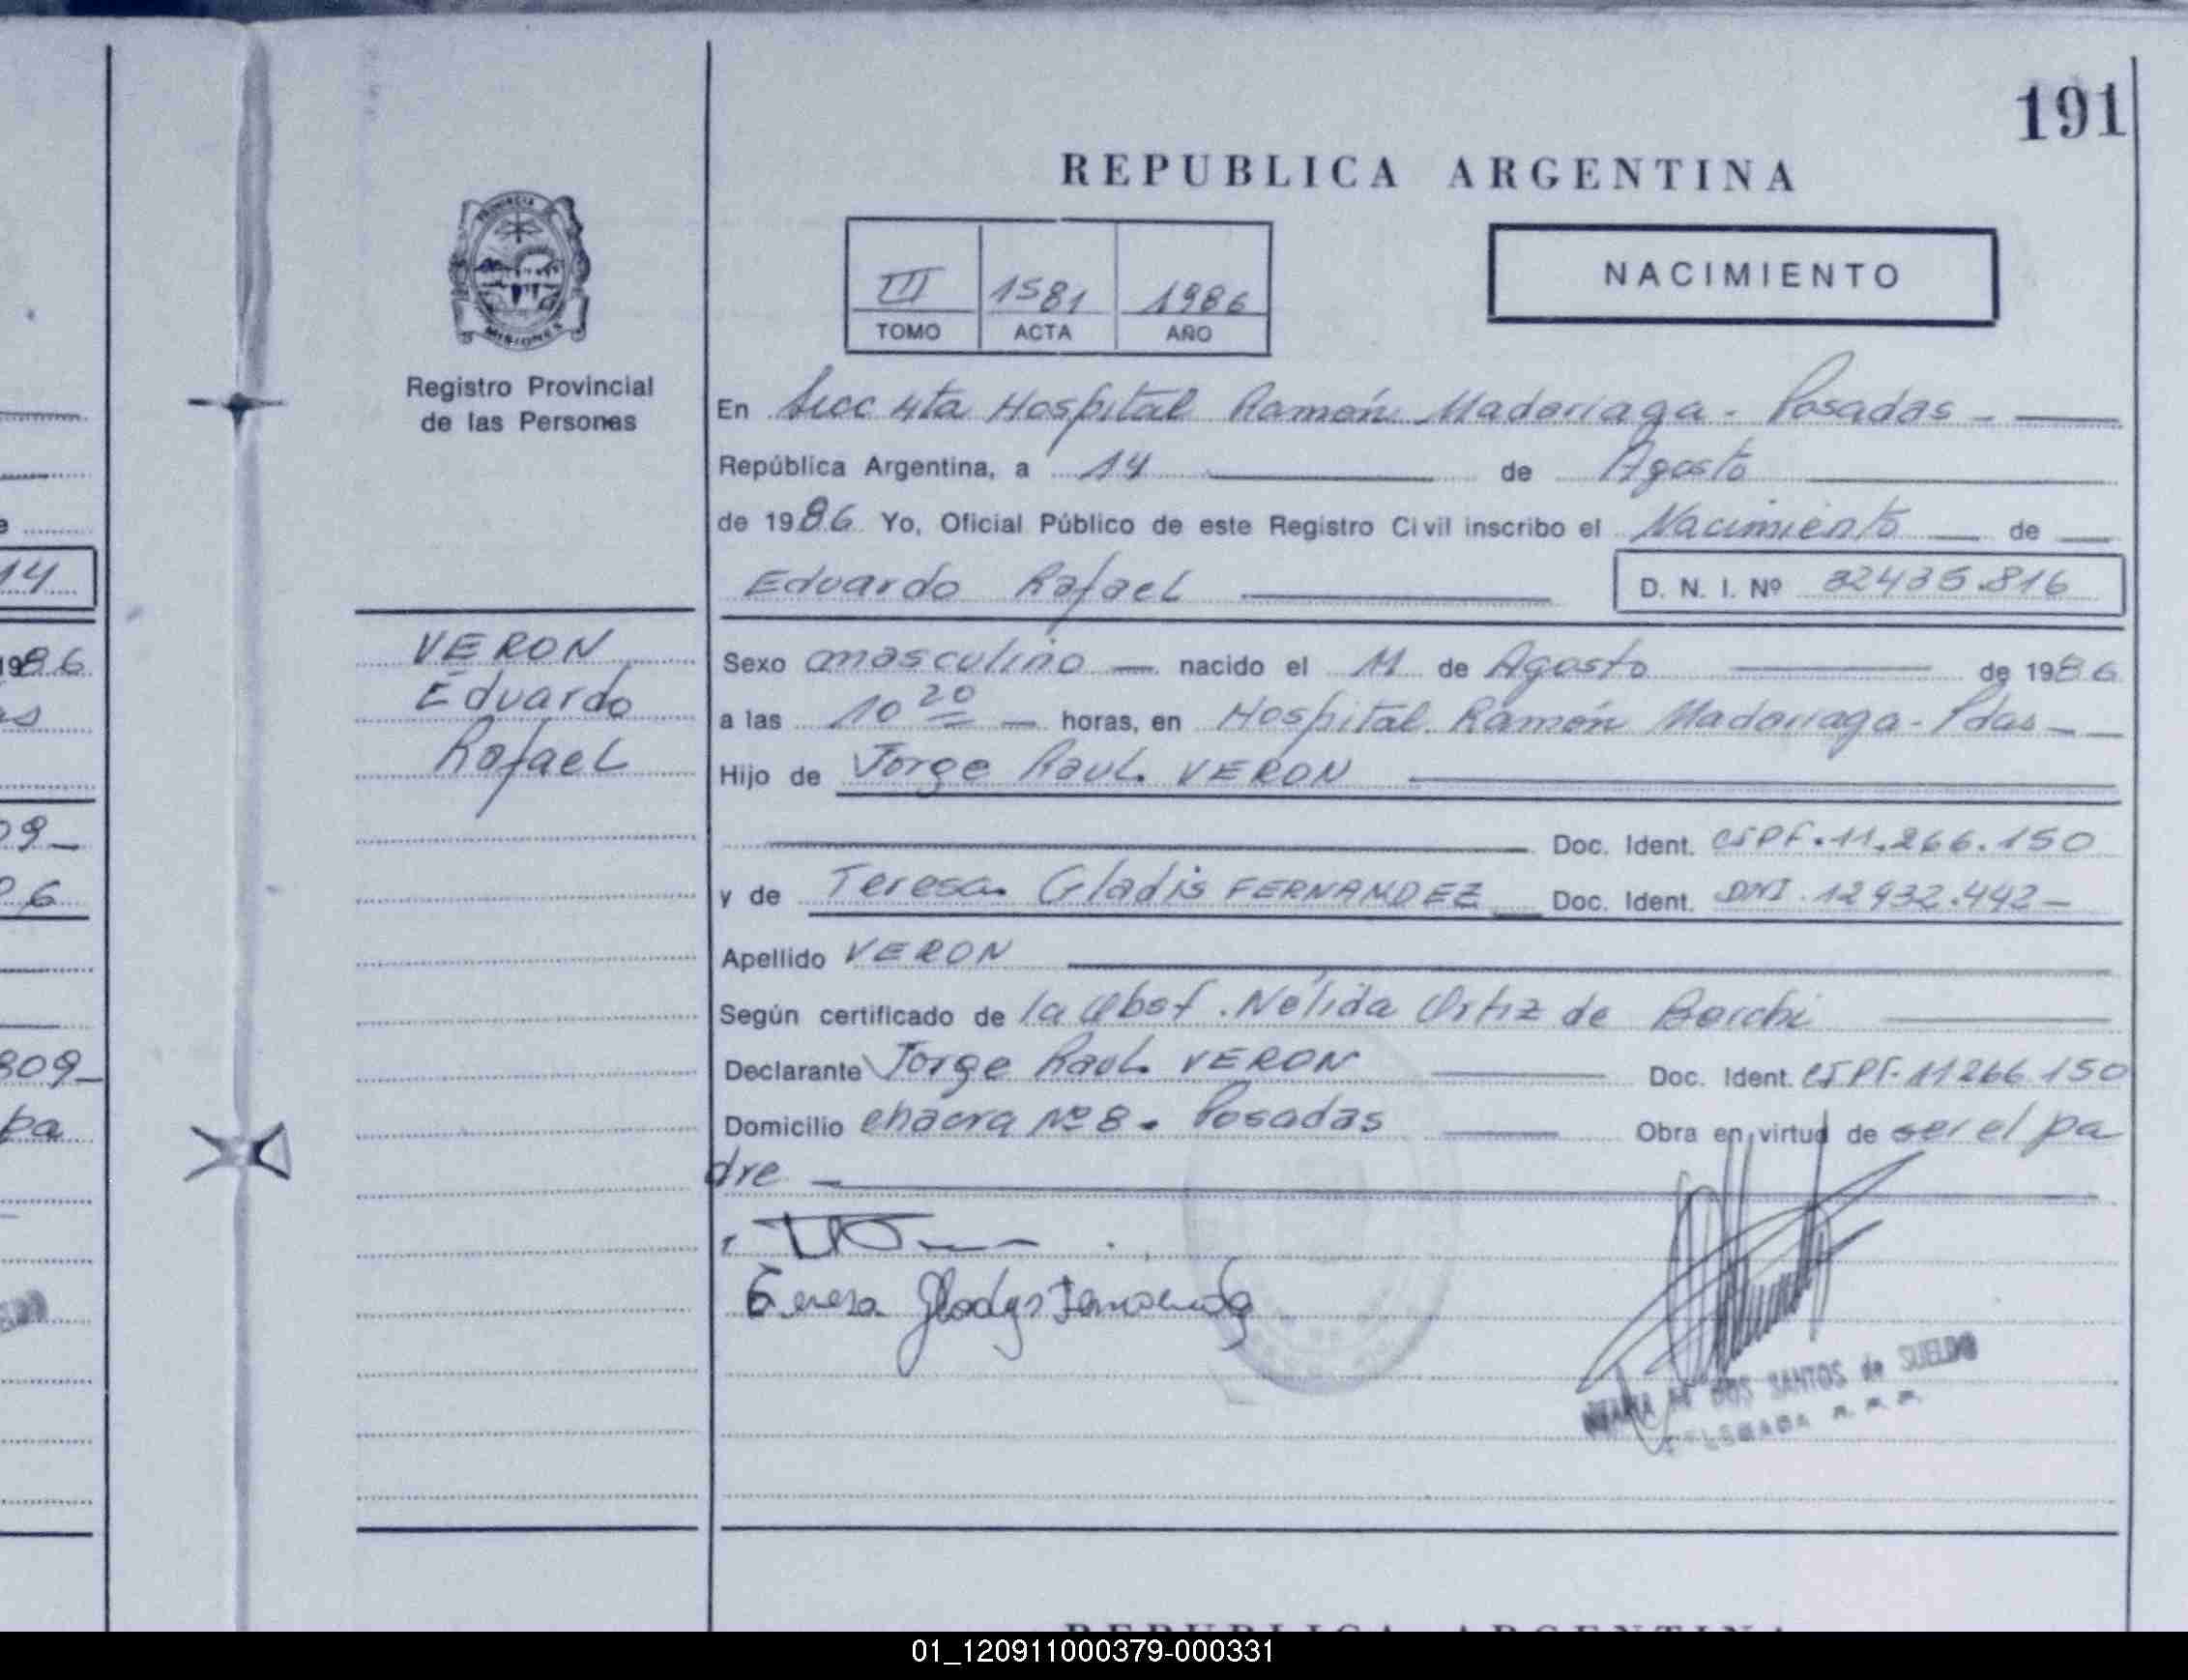 191
REPUBLICA ARGENTINA
PROVINCIA
MISIONES
Registro Provincial
de las Personas
III 1581 1986
TOMO ACTA AÑO
NACIMIENTO
En Secc 4ta Hospital Ramón Madariaga - Posadas -
República Argentina, a 14 de Agosto
de 1986 Yo, Oficial Público de este Registro Civil inscribo el Nacimiento de
Eduardo Rafael D. N. I. Nº 32435.816
VERON
Eduardo
Rafael
Sexo masculino nacido el 11 de Agosto de 1986
a las 10 20 horas, en Hospital Ramón Madariaga - Pdas -
Hijo de Jorge Raul VERON
Doc. Ident. CIPF. 11.266.150
y de Teresa Gladis FERNANDEZ Doc. Ident. DNI 12932.442-
Apellido VERON
Según certificado de la Obst. Nélida Ortiz de
Declarante Jorge Raul VERON Doc. Ident. CIPF- 11266 150
Domicilio chacra Nº 8. Posadas Obra en virtud de ser el pa
dre
Teresa Gladys Fernandez
DOS SANTOS de SUELDO
14
1986
as
09-
06
809-
pa
REPUBLICA ARGENTINA
01_120911000379-000331